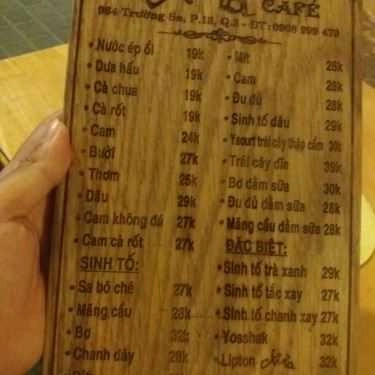 CAFÉ
984 Trường Sa, P.12, Q.3 - ĐT: 0906 999 479
• Nước ép ổi 19k
• Dưa hấu 19k
• Cà chua 19k
• Cà rốt 19k
• Cam 24k
• Bưởi 27k
• Thơm 25k
• Dâu 29k
• Cam không đá 27k
• Cam cà rốt 27k
SINH TỐ:
• Sa bô chê 27k
• Mãng cầu 28k
• Bơ 32k
• Chanh dây 28k
• Mít 28k
• Cam 28k
• Đu đủ 28k
• Sinh tố dâu 29k
• Yaourt trái cây thập cẩm 30k
• Trái cây dĩa 39k
• Bơ dầm sữa 30k
• Đu đủ dầm sữa 28k
• Mãng cầu dầm sữa 28k
ĐẶC BIỆT:
• Sinh tố trà xanh 29k
• Sinh tố tắc xay 27k
• Sinh tố chanh xay 27k
• Yosshak 32k
• Lipton 32k